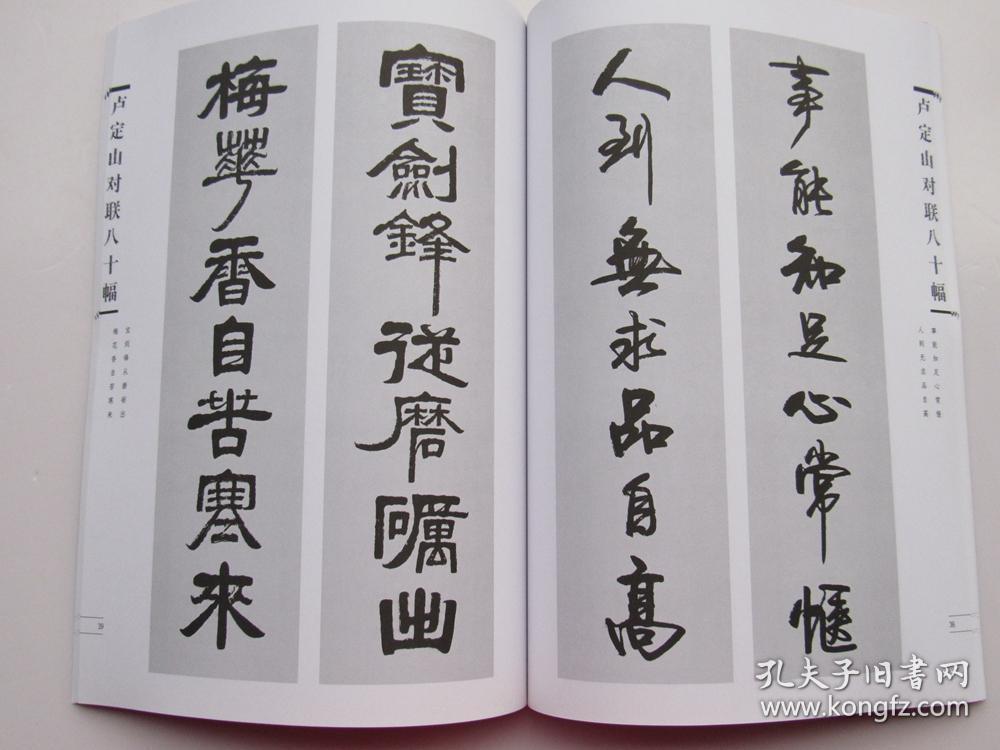 卢定山对联八十幅
事能知足心常惬
人到无求品自高
38
事能知足心常愜
人到無求品自高
寶劍鋒從磨礪出
梅華香自苦寒來
卢定山对联八十幅
宝剑锋从磨砺出
梅花香自苦寒来
39
孔夫子旧书网
www.kongfz.com